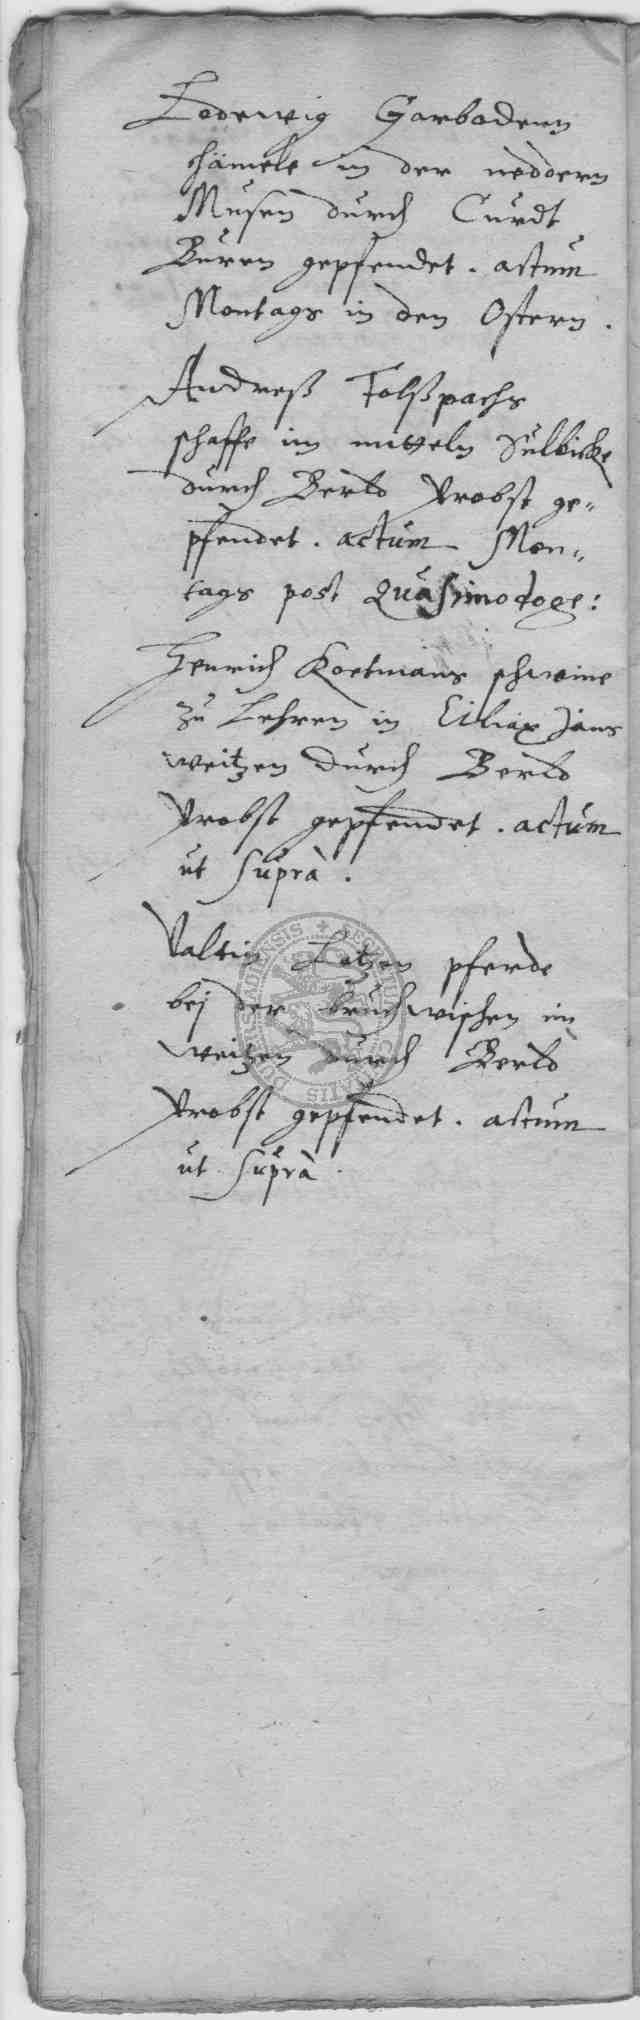 Lodewig Garbodenn
hämele in der neddern
Musen durch Curdt
Buren gepfendet. actum
Montags in den Ostern.
Andreß Folßpachs
schaffe im mitteln Sulbicke
durch Berld Probst ge„
pfendet. actum Mon„
tags post Quasimodoge:
Henrich Koetmans schweine
zu Lehren in Ciliax Jans
weitzen durch Berld
Probst gepfendet. actum
ut suprà.
Valtin Lotzen pferde
bej der bruchwischen im
weitzen durch Berld
Probst gepfendet. actum
ut suprà.